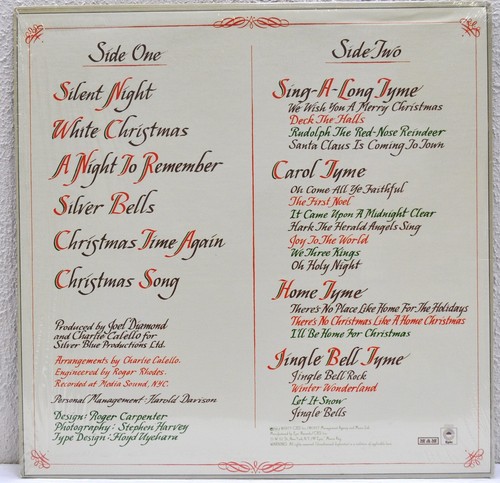 Side One
Silent Night
White Christmas
A Night To Remember
Silver Bells
Christmas Time Again
Christmas Song
Produced by Joel Diamond
and Charlie Calello for
Silver Blue Productions Ltd.
Arrangements by Charlie Calello.
Engineered by Roger Rhodes.
Recorded at Media Sound, NYC.
Personal Management-Harold Davison
Design: Roger Carpenter
Photography: Stephen Harvey
Type Design: Floyd Uyehara
Side Two
Sing-A-Long Tyme
We Wish You A Merry Christmas
Deck The Halls
Rudolph The Red-Nose Reindeer
Santa Claus Is Coming To Town
Carol Tyme
Oh Come All Ye Faithful
The First Noel
It Came Upon A Midnight Clear
Hark The Herald Angels Sing
Joy To The World
We Three Kings
Oh Holy Night
Home Tyme
There's No Place Like Home For The Holidays
There's No Christmas Like A Home Christmas
I'll Be Home For Christmas
Jingle Bell Tyme
Jingle Bell Rock
Winter Wonderland
Let It Snow
Jingle Bells